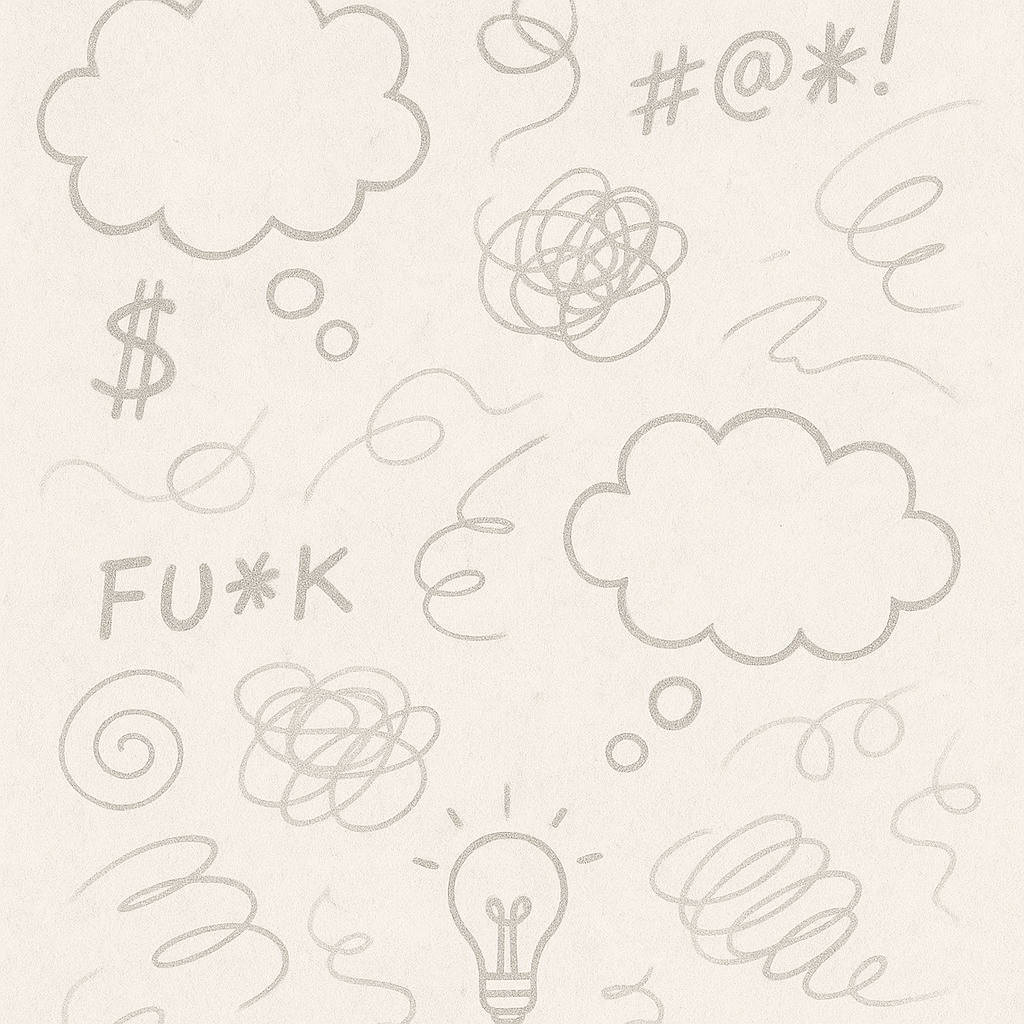 #@*!
$
FU*K